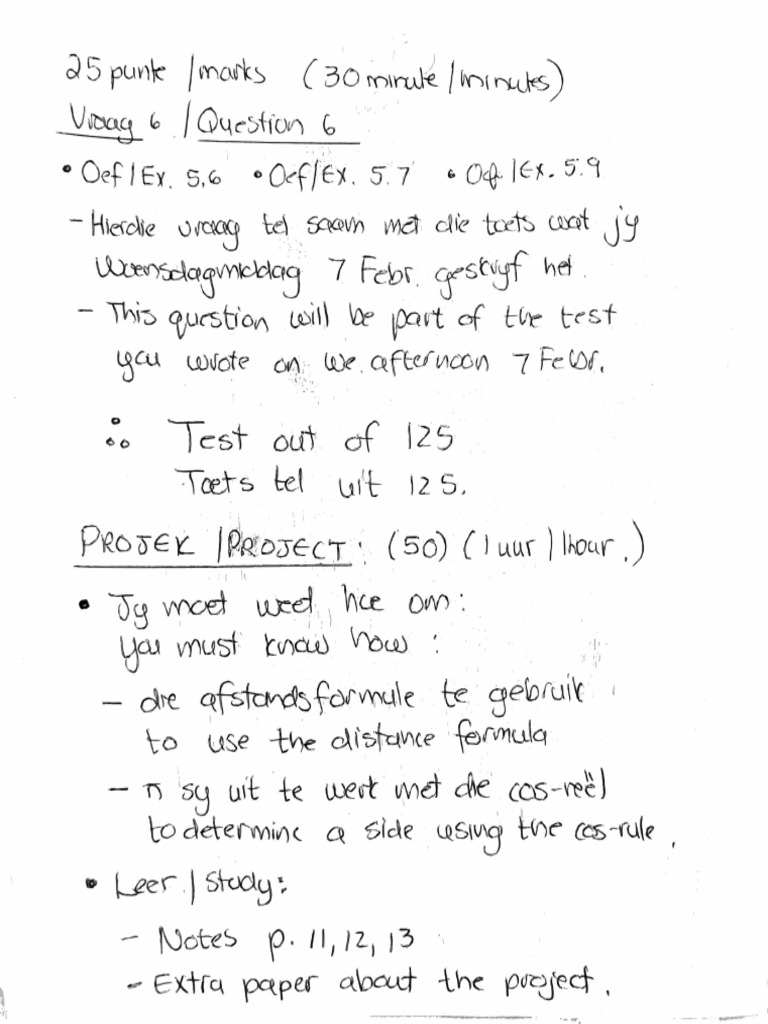 25 punte / marks (30 minute / minutes)
Vraag 6 / Question 6
• Oef / Ex. 5.6 • Oef / Ex. 5.7 • Oef. / Ex. 5.9
- Hierdie vraag tel saam met die toets wat jy
Woensdagmiddag 7 Febr. geskryf het.
- This question will be part of the test
you wrote on We. afternoon 7 Febr.
∴ Test out of 125
Toets tel uit 125.
PROJEK / PROJECT: (50) (1 uur / 1 hour.)
• Jy moet weet hoe om:
You must know how:
- die afstandsformule te gebruik
to use the distance formula
- 'n sy uit te werk met die cos-reël
to determine a side using the cos-rule.
• Leer / Study:
- Notes p. 11, 12, 13
- Extra paper about the project.